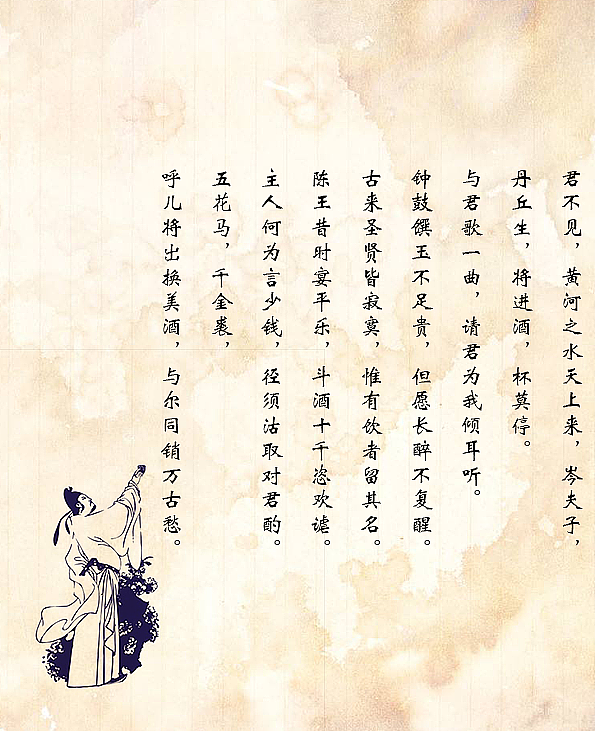 君不见，黄河之水天上来，岑夫子，
丹丘生，将进酒，杯莫停。
与君歌一曲，请君为我倾耳听。
钟鼓馔玉不足贵，但愿长醉不复醒。
古来圣贤皆寂寞，惟有饮者留其名。
陈王昔时宴平乐，斗酒十千恣欢谑。
主人何为言少钱，径须沽取对君酌。
五花马，千金裘，
呼儿将出换美酒，与尔同销万古愁。